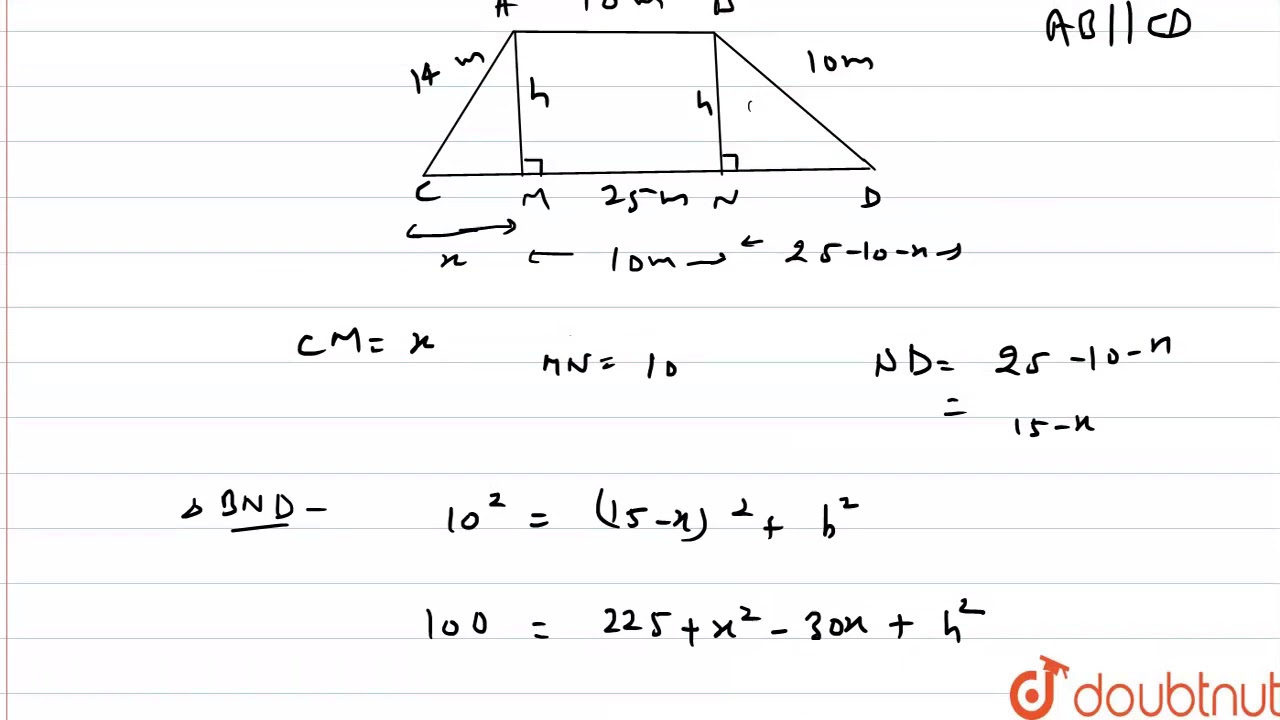 A 10 m B
AB || CD
14 m
10m
h h
C M 25m N D
x 10m 25-10-x
CM = x
MN = 10
ND = 25 -10 -x
= 15-x
Δ BND - 10² = (15-x)² + h²
100 = 225 + x² - 30x + h²
doubtnut